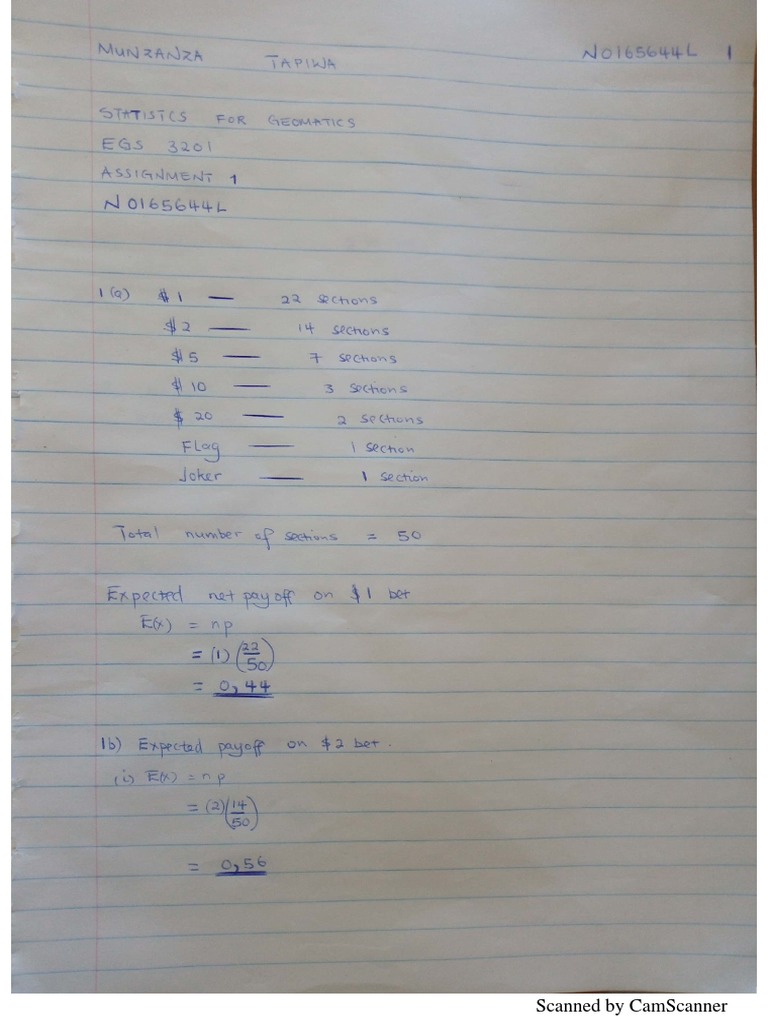 MUNZANZA TAPIWA N0165644L 1
STATISTICS FOR GEOMATICS
EGS 3201
ASSIGNMENT 1
N0165644L
1(a) $1 — 22 sections
$2 — 14 sections
$5 — 7 sections
$10 — 3 sections
$20 — 2 sections
Flag — 1 section
Joker — 1 section
Total number of sections = 50
Expected net payoff on $1 bet
E(x) = np
= (1)(22/50)
= 0,44
1b) Expected payoff on $2 bet.
(i) E(x) = np
= (2)(14/50)
= 0,56
Scanned by CamScanner